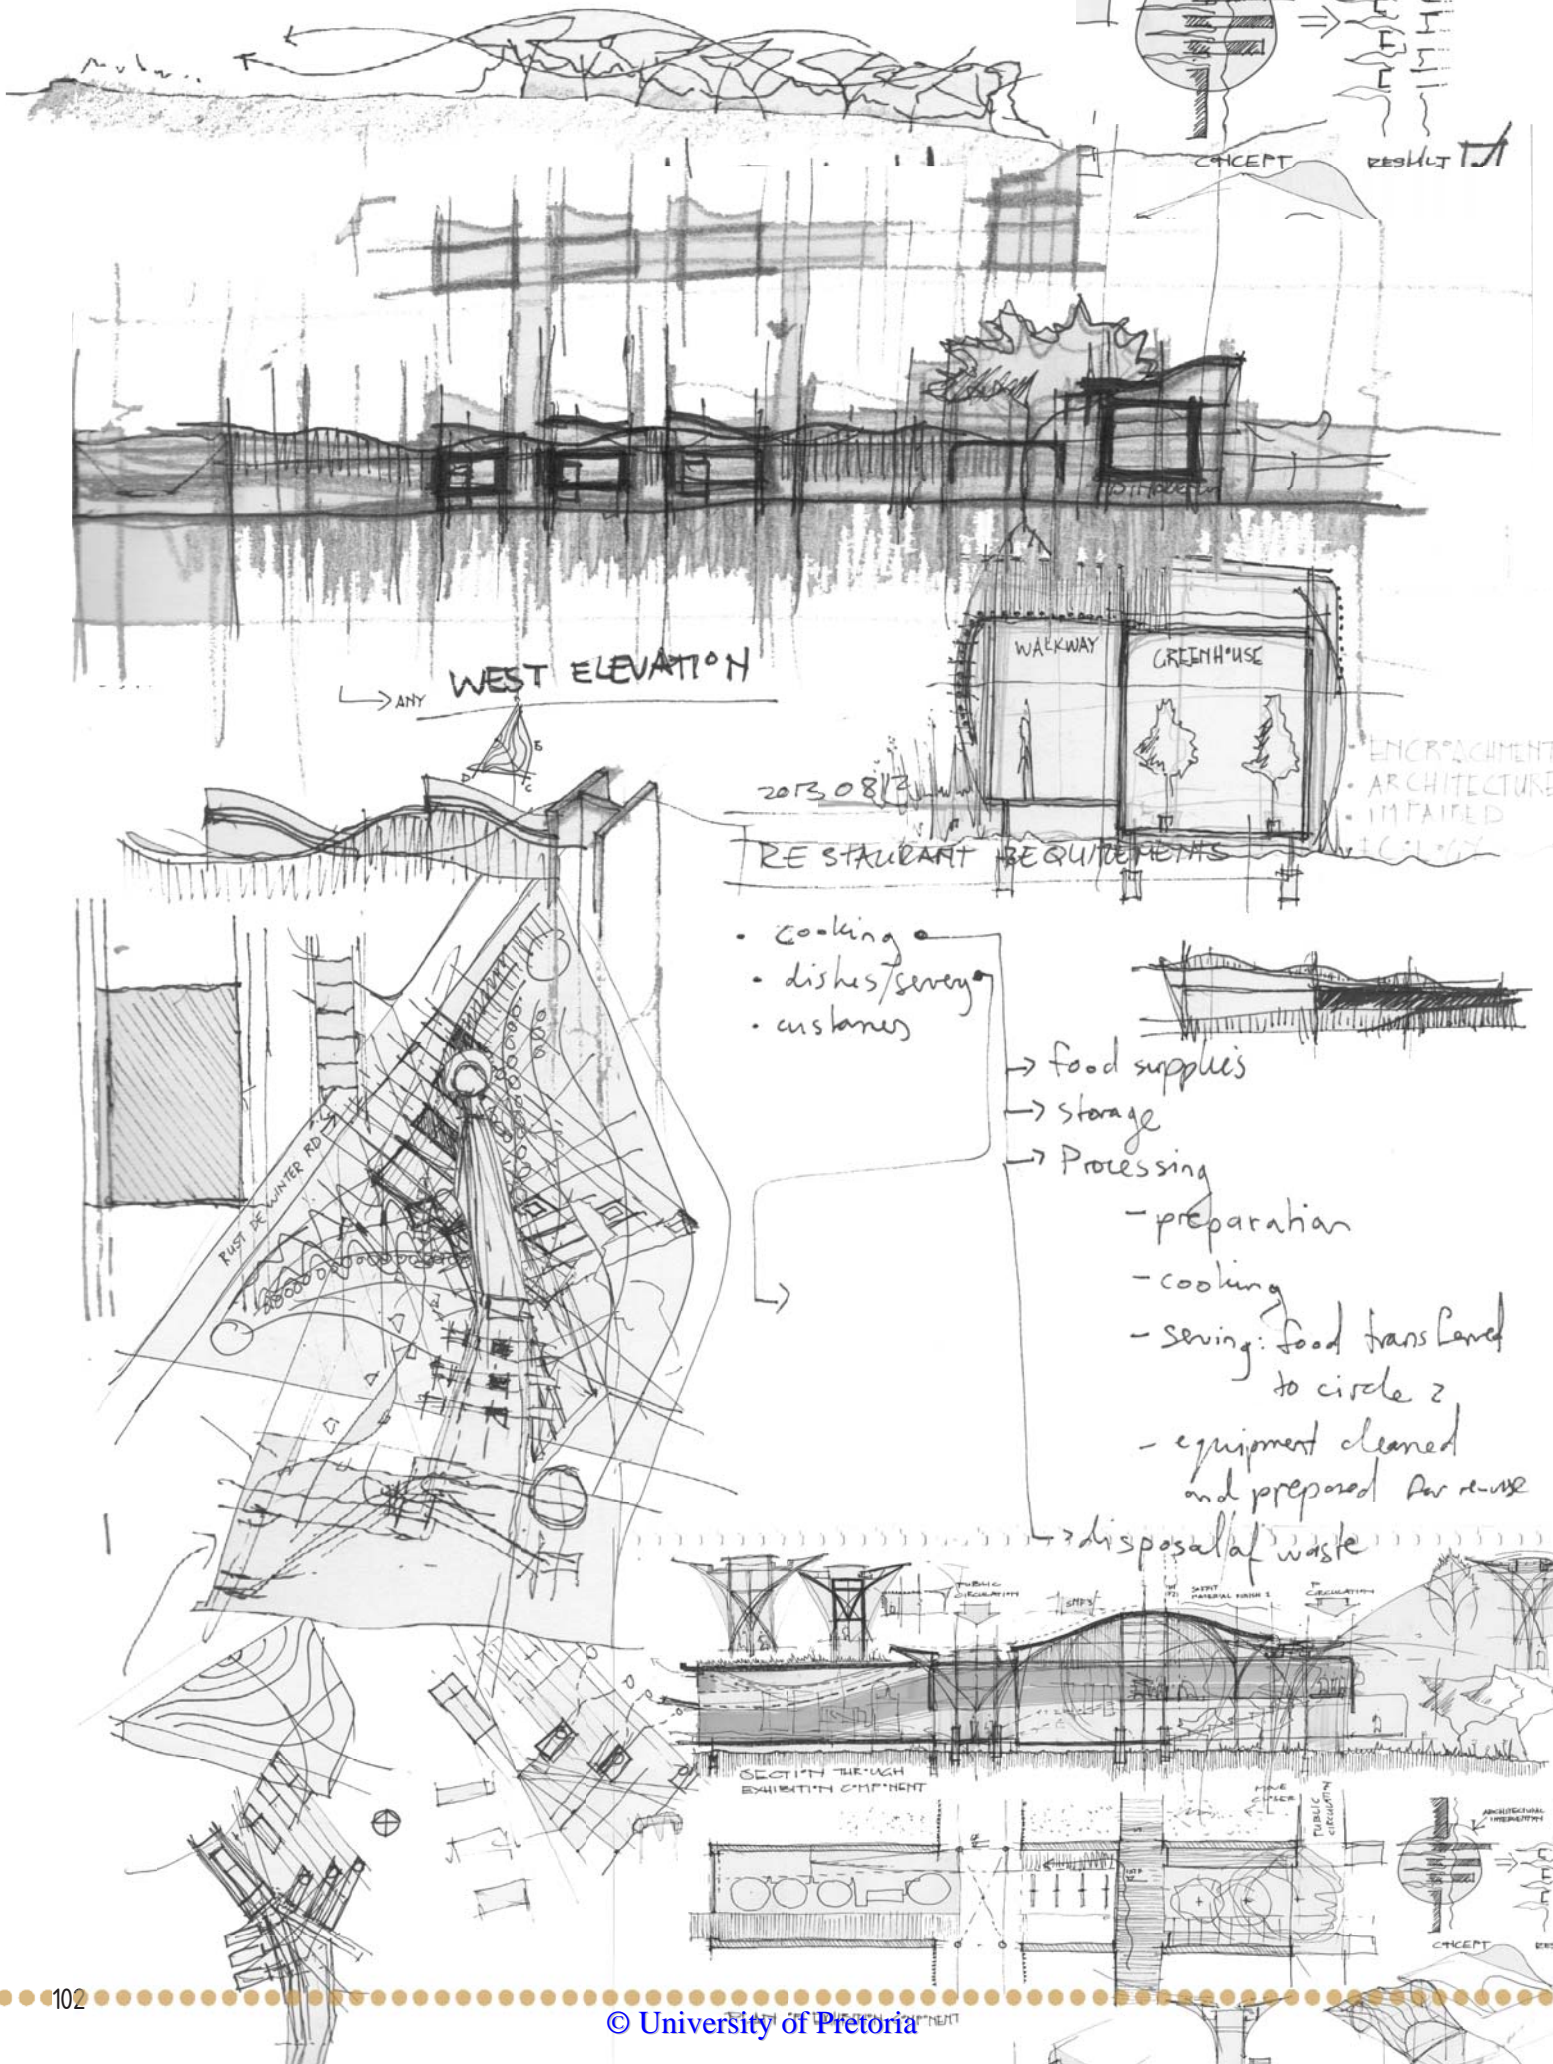 CONCEPT
RESULT
WEST ELEVATION
ANY
B
D
C
WALKWAY
GREENHOUSE
ENCROACHMENT
ARCHITECTURE
IMPAIRED
ECOLOGY
RESTAURANT REQUIREMENTS
• cooking
• dishes/servery
→ food supplies
→ storage
→ Processing
- preparation
- cooking
- serving: food transferred
to circle 2
- equipment cleaned
and prepared for re-use
→ disposal of waste
RUST DE WINTER RD
PUBLIC
CIRCULATION
CIRCULATION
SECTION THROUGH
EXHIBITION COMPONENT
MOVE
CLOSER
PUBLIC
CIRCULATION
ARCHITECTURAL
INTERVENTION
CONCEPT
RES
102
PLAN OF EXHIBITION COMPONENT
© University of Pretoria